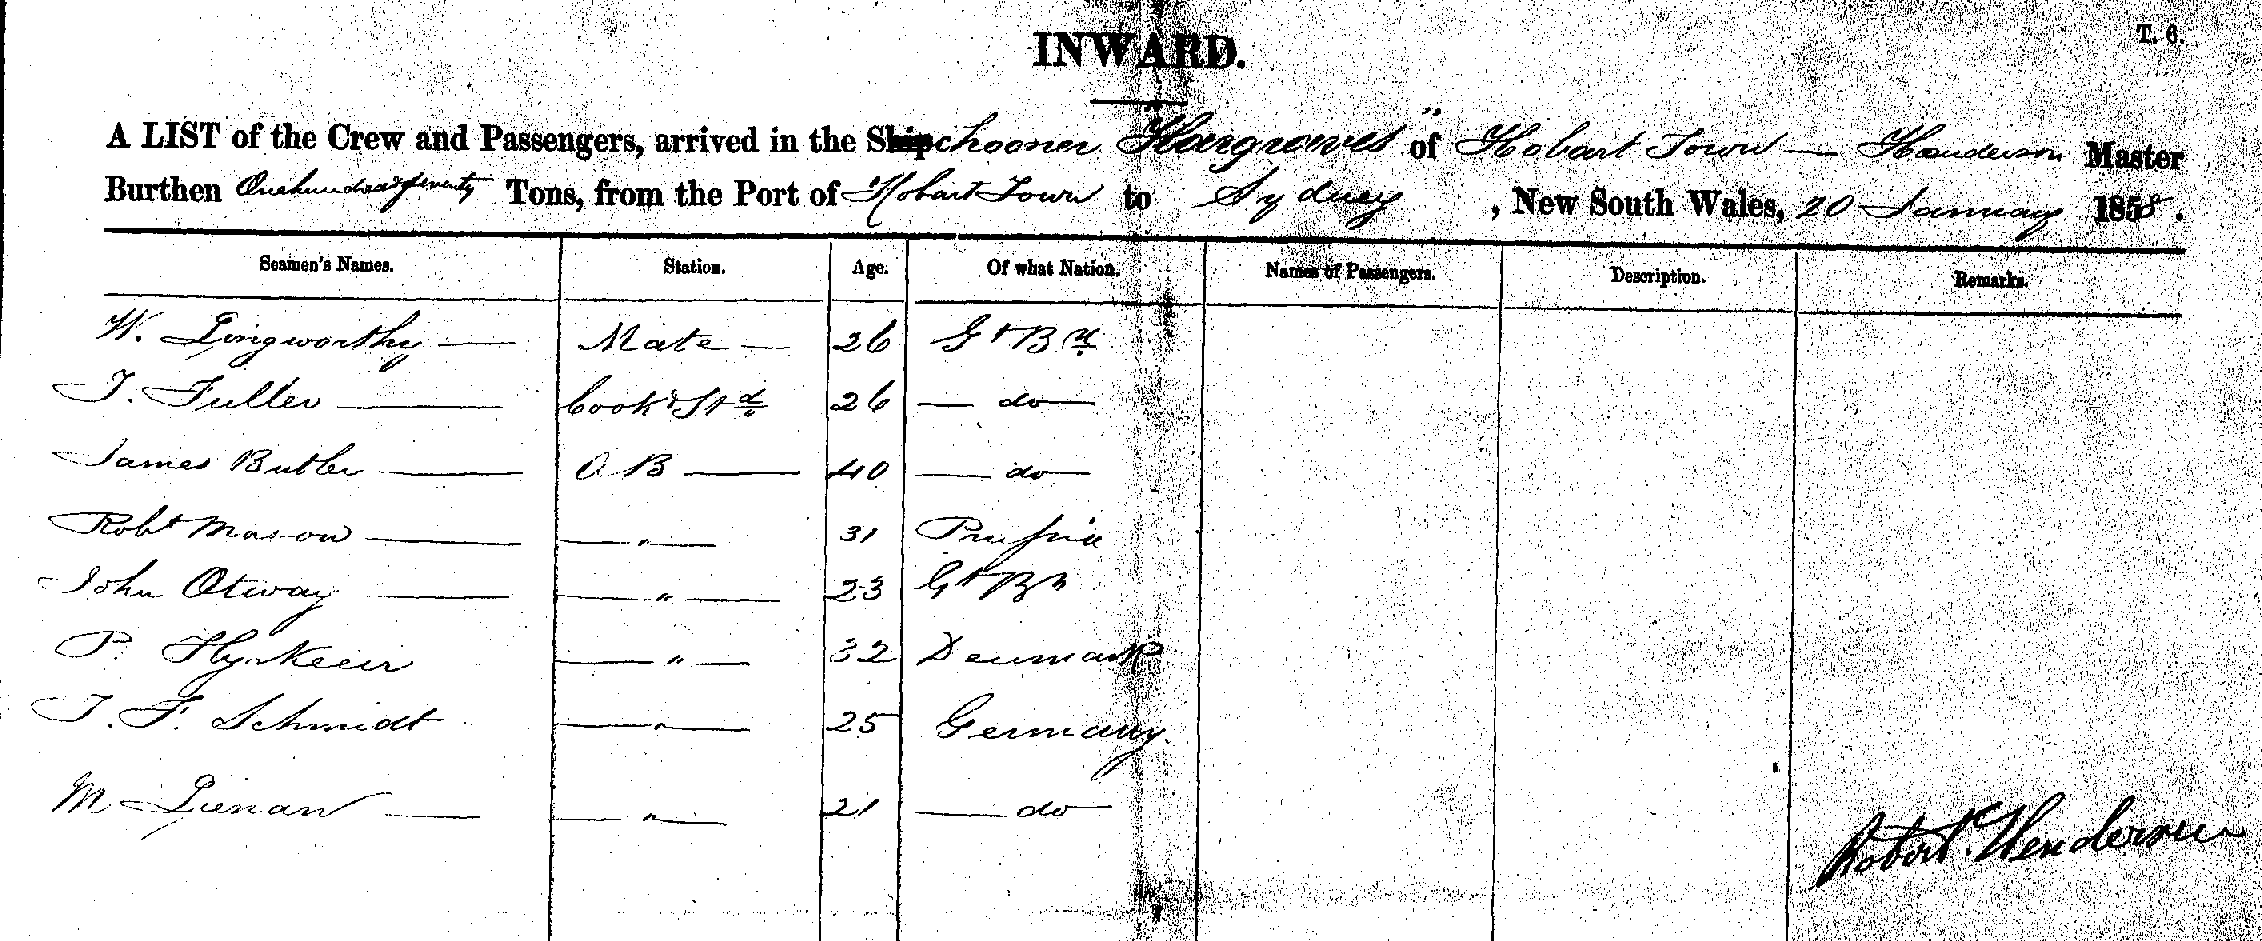 T. 6.
INWARD.
A LIST of the Crew and Passengers, arrived in the Schooner "Hargraves" of Hobart Town — Henderson Master
Burthen One hundred & seventy Tons, from the Port of Hobart Town to Sydney, New South Wales, 20 January 1858.
Seamen's Names. Station. Age. Of what Nation. Names of Passengers. Description. Remarks.
W. Lingworthy — Mate — 26 Gt Bn
T. Fuller — Cook & Std 26 — do —
James Butler — A B — 40 — do —
Robt Mason — " — 31 Prussia
John Otway — " — 23 Gt Bn
P. — " — 32 Denmark
T. F. Schmidt — " — 25 Germany.
M Lienau — " — 21 — do —
Robert Henderson